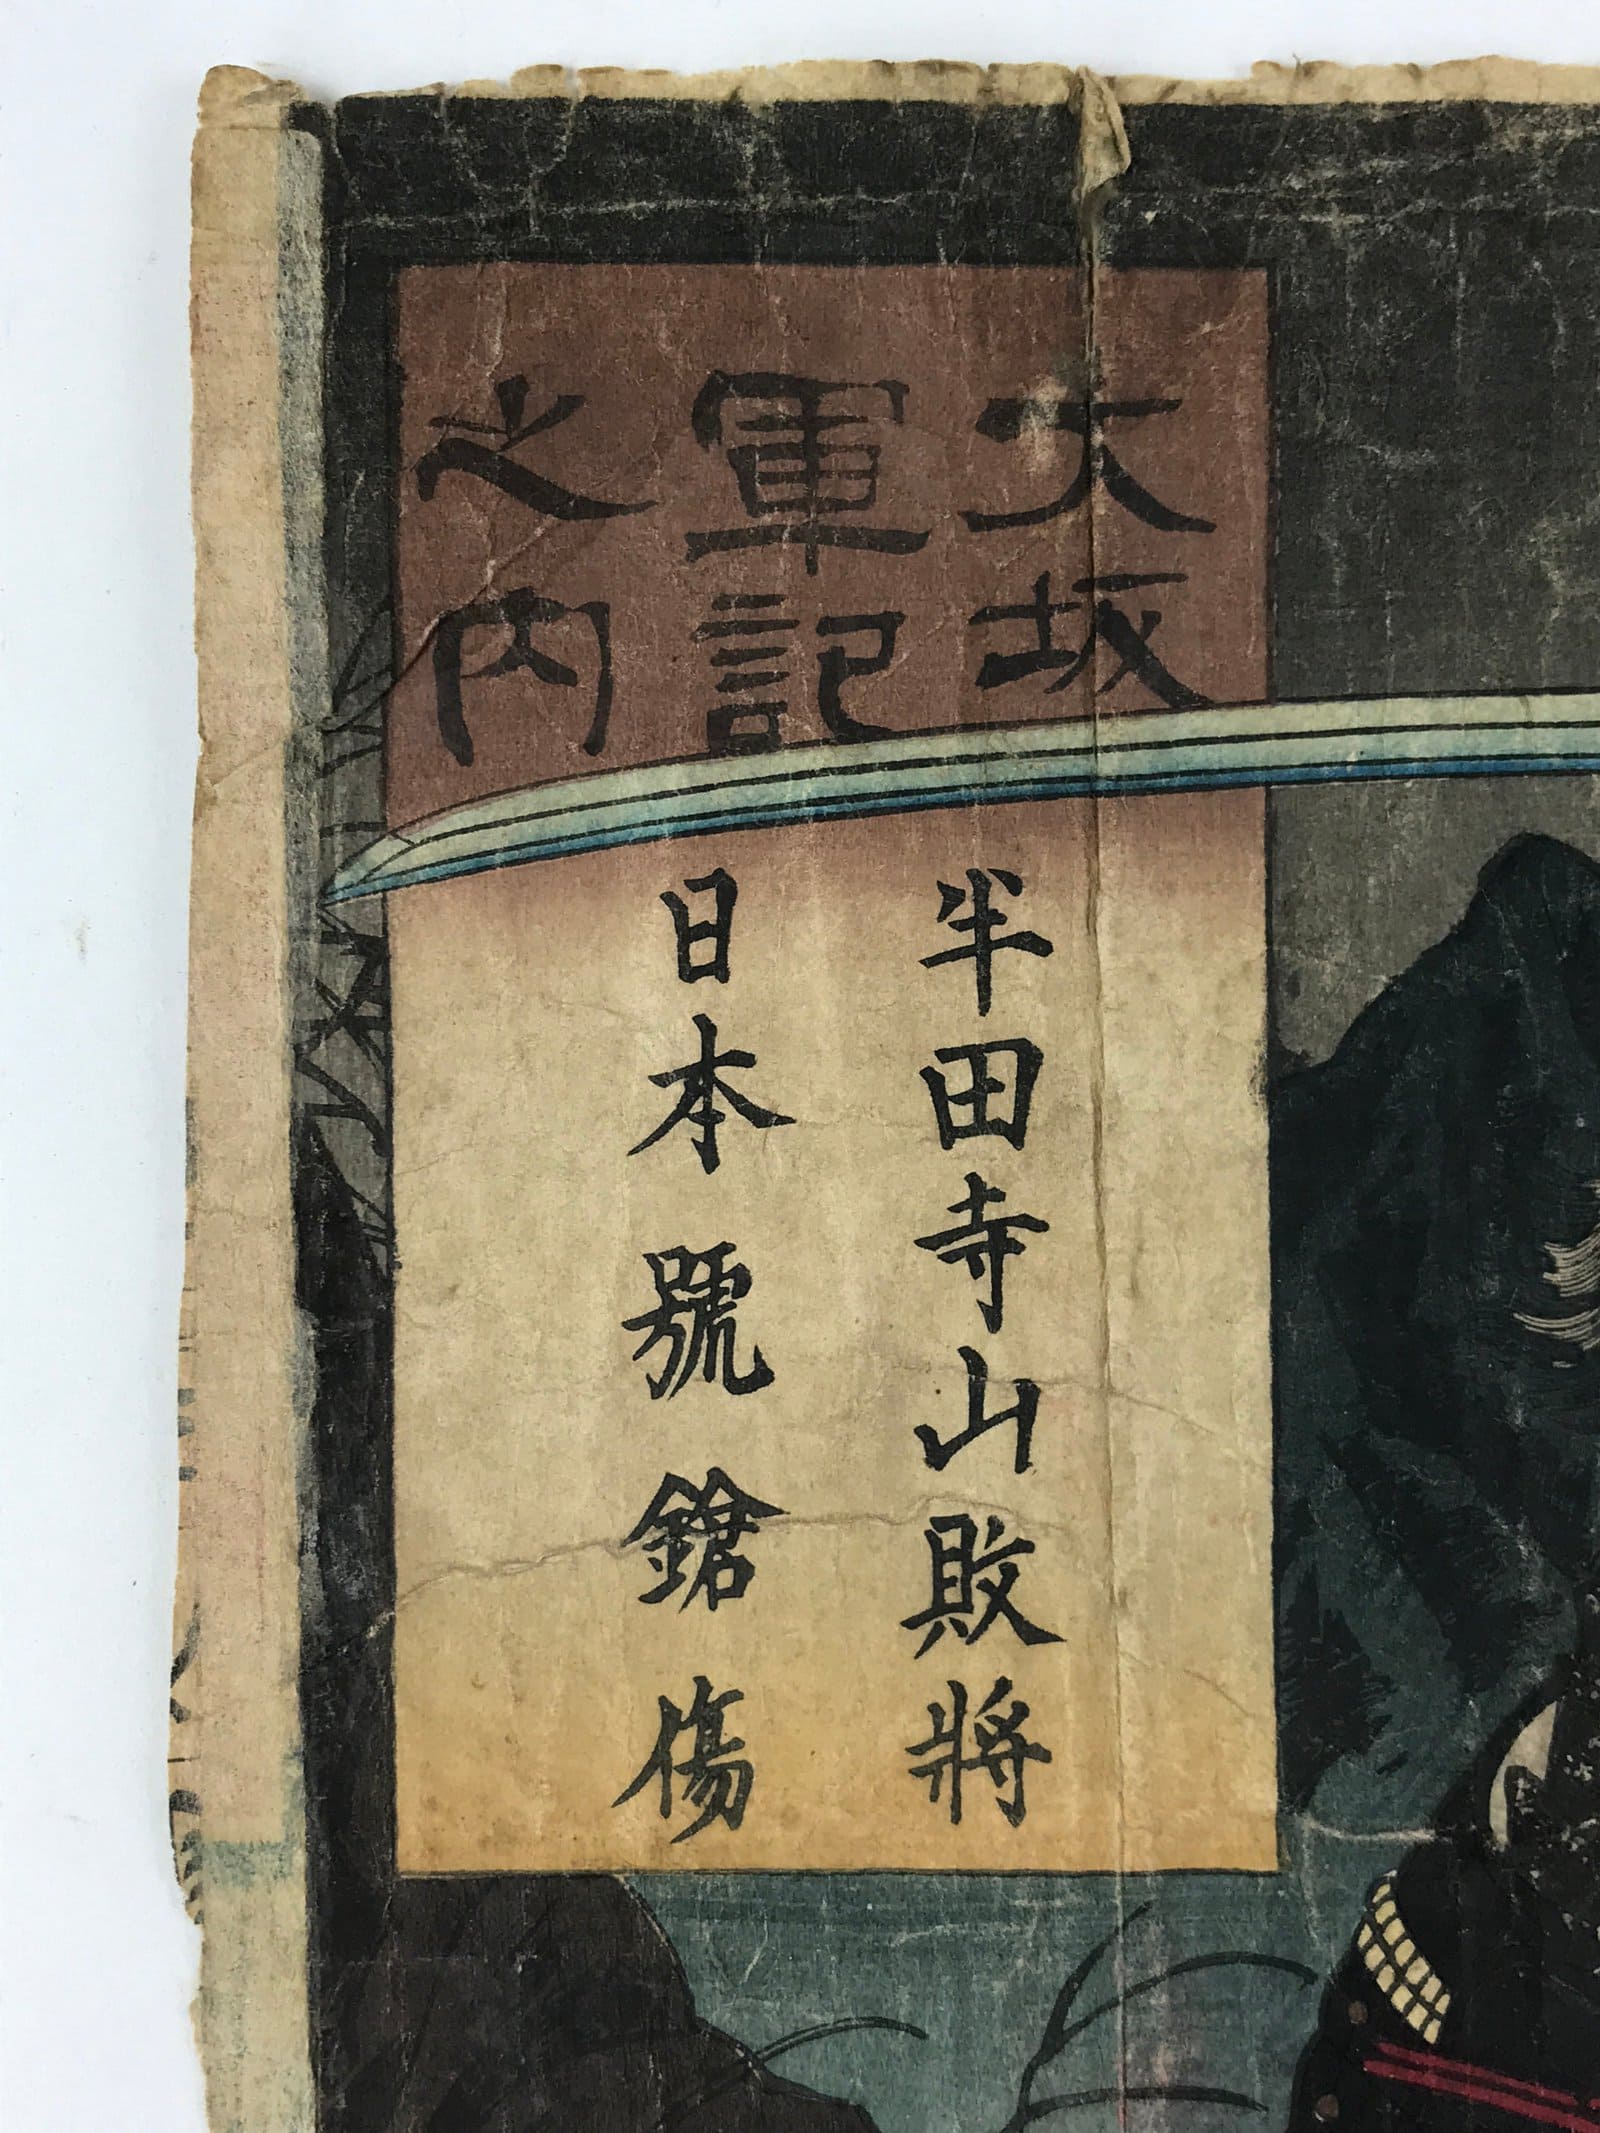 大坂
軍記
之内
半田寺山敗將
日本號鎗傷